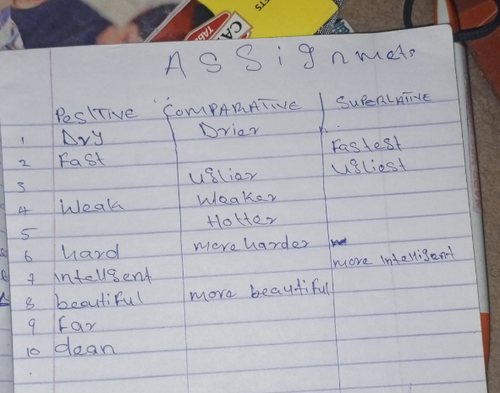 CA
TAB
ASSignmets
POSITIVE COMPARATIVE SUPERLATIVE
1 Dry Drier
2 Fast Fastest
3 Uglier Ugliest
4 Weak Weaker
5 Hotter
6 hard more harder
7 intellgent more intelligent
8 beautiful more beautiful
9 Far
10 clean